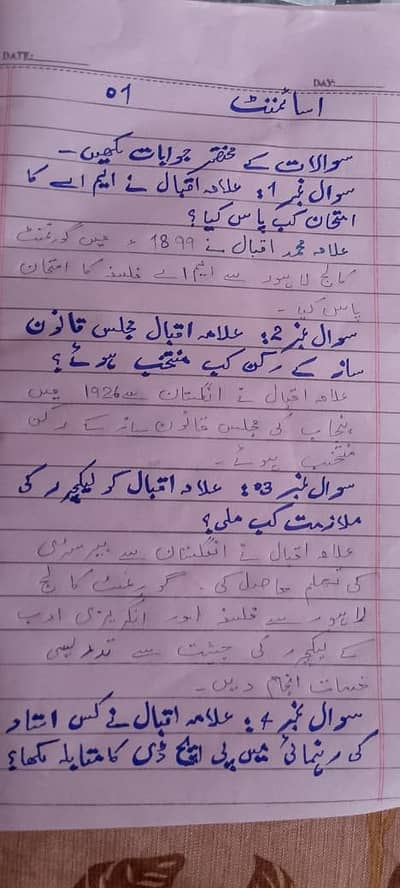 DATE:
DAY:
اسائمنٹ 01
سوالات کے مختصر جوابات لکھیں۔
سوال نمبر 1: علامہ اقبال نے ایم اے کا
امتحان کب پاس کیا؟
علامہ محمد اقبال نے 1899ء میں گورنمنٹ
کالج لاہور سے ایم اے فلسفہ کا امتحان
پاس کیا۔
سوال نمبر 2: علامہ اقبال مجلس قانون
ساز کے رکن کب منتخب ہوئے؟
علامہ اقبال نے انگلستان سے 1926 میں
پنجاب کی مجلس قانون ساز کے رکن
منتخب ہوئے۔
سوال نمبر 03: علامہ اقبال کو لیکچرر کی
ملازمت کب ملی؟
علامہ اقبال نے انگلستان سے بیرسٹری
کی تعلیم حاصل کی۔ گورنمنٹ کالج
لاہور سے فلسفہ اور انگریزی ادب
کے لیکچرر کی حیثیت سے تدریسی
خدمات انجام دیں۔
سوال نمبر 4: علامہ اقبال نے کس استاد
کی رہنمائی میں پی ایچ ڈی کا مقالہ لکھا؟